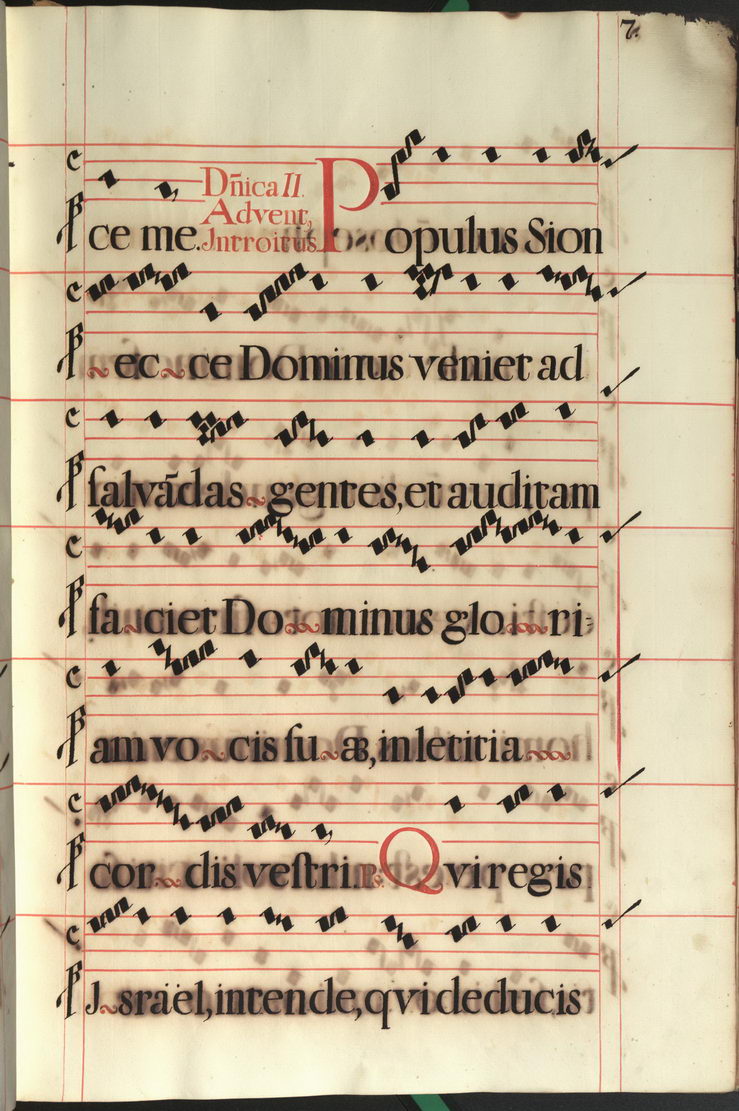 7.
ce me. Dñica II. Advent, Introitus Populus Sion
ec ce Dominus veniet ad
salvãdas gentes, et auditam
faciet Do minus glo ri-
am vo cis su æ, in letitia
cor dis vestri. Ps. Qvi regis
Israël, intende, qvi deducis